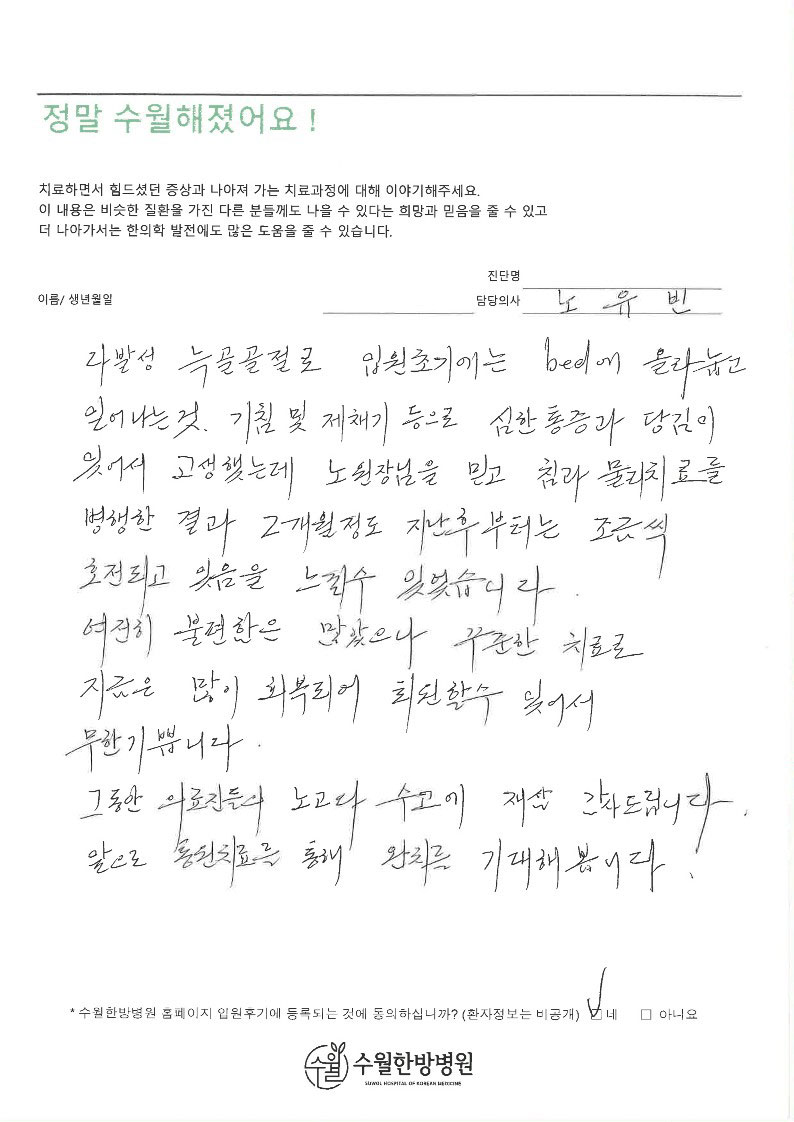 정말 수월해졌어요 !
치료하면서 힘드셨던 증상과 나아져 가는 치료과정에 대해 이야기해주세요.
이 내용은 비슷한 질환을 가진 다른 분들께도 나을 수 있다는 희망과 믿음을 줄 수 있고
더 나아가서는 한의학 발전에도 많은 도움을 줄 수 있습니다.
진단명
이름/ 생년월일 담당의사 노 유 빈
다발성 늑골골절로 입원초기에는 bed에 올라눕고
일어나는것. 기침 및 제채기 등으로 심한통증과 당김이
있어서 고생했는데 노원장님을 믿고 침과 물리치료를
병행한 결과 2개월정도 지난후부터는 조금씩
호전되고 있음을 느낄수 있었습니다.
여전히 불편함은 많았으나 꾸준한 치료로
지금은 많이 회복되어 퇴원할수 있어서
무한기쁩니다.
그동안 의료진들의 노고와 수고에 재삼 감사드립니다.
앞으로 통원치료를 통해 완치를 기대해봅니다.
* 수월한방병원 홈페이지 입원후기에 등록되는 것에 동의하십니까? (환자정보는 비공개) ☑ 네 □ 아니요
수월 수월한방병원
SUWOL HOSPITAL OF KOREAN MEDICINE